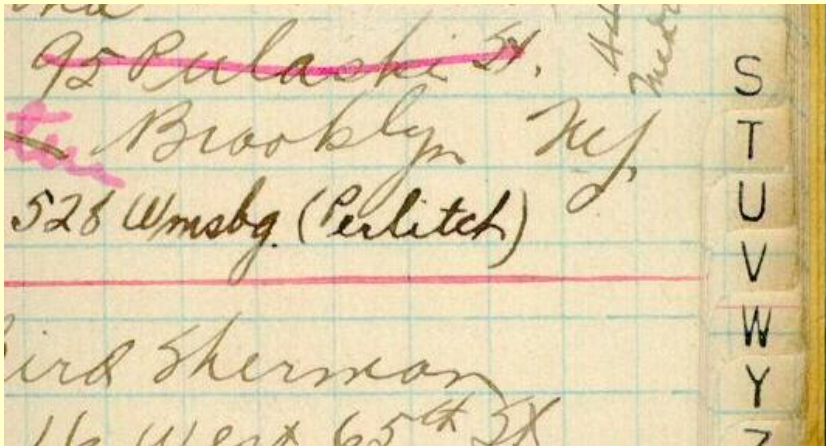 95 Pulaski St.
Brooklyn NY
528 Wmsbg. (Perlitch)
Sherman
16 West 65th St
S
T
U
V
W
Y